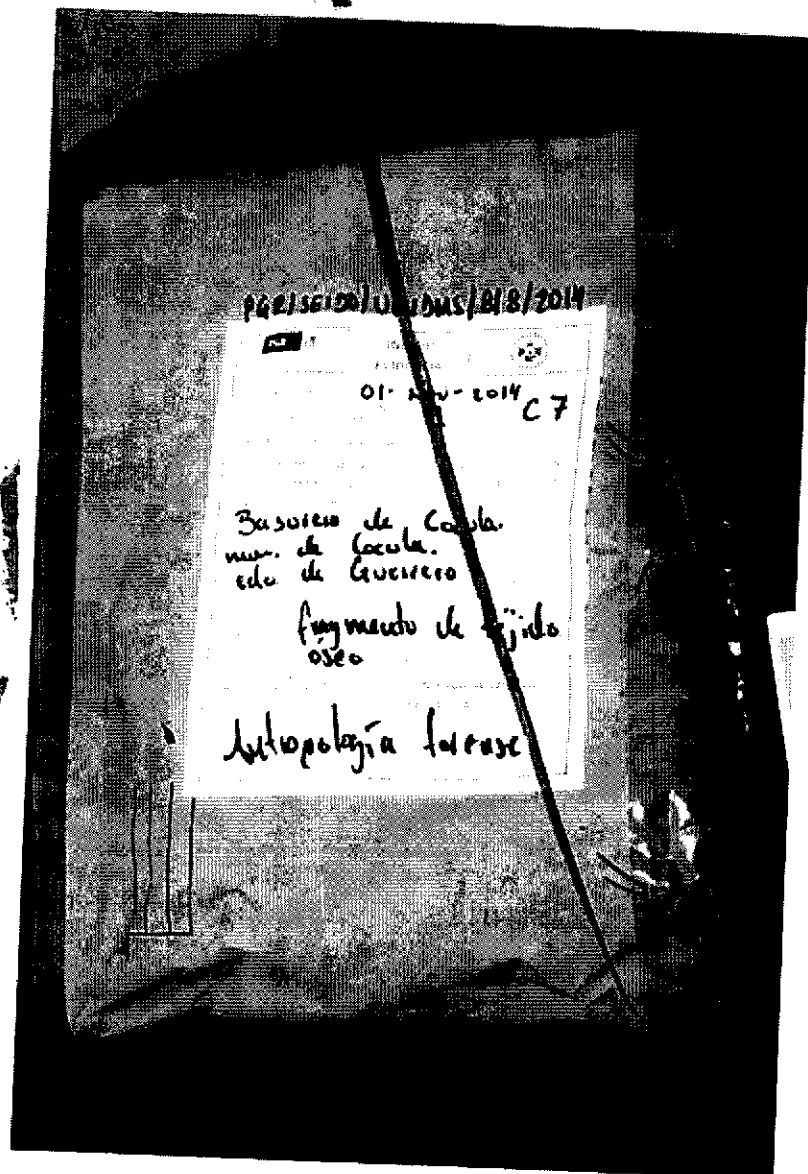 PGR/SEIDO/UEIDMS/818/2014
01-Nov-2014
C7
Basurero de Cocula.
mun. de Cocula.
edo. de Guerrero
fragmento de tejido
óseo
Antropología forense